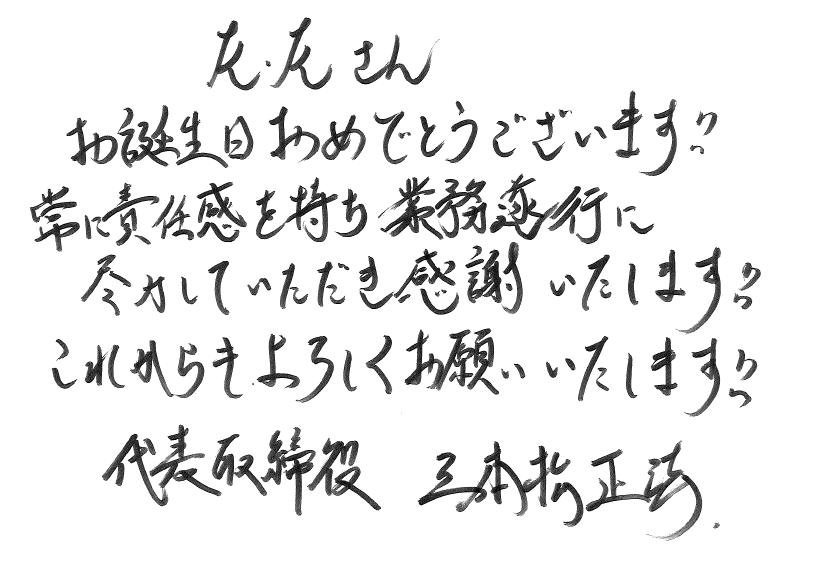 さん
お誕生日おめでとうございます!!
常に責任感を持ち業務遂行に
尽力していただき感謝いたします!!
これからもよろしくお願いいたします!!
代表取締役 三本松正